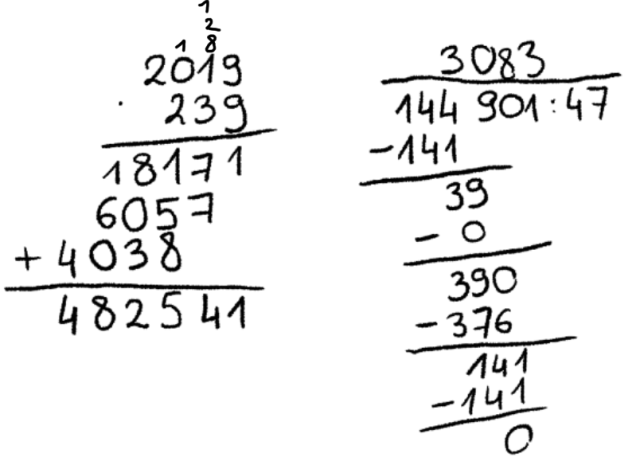 1
2
1 8
2019
· 239
18171
6057
+ 4038
482541
3083
144 901:47
-141
39
- 0
390
-376
141
-141
0